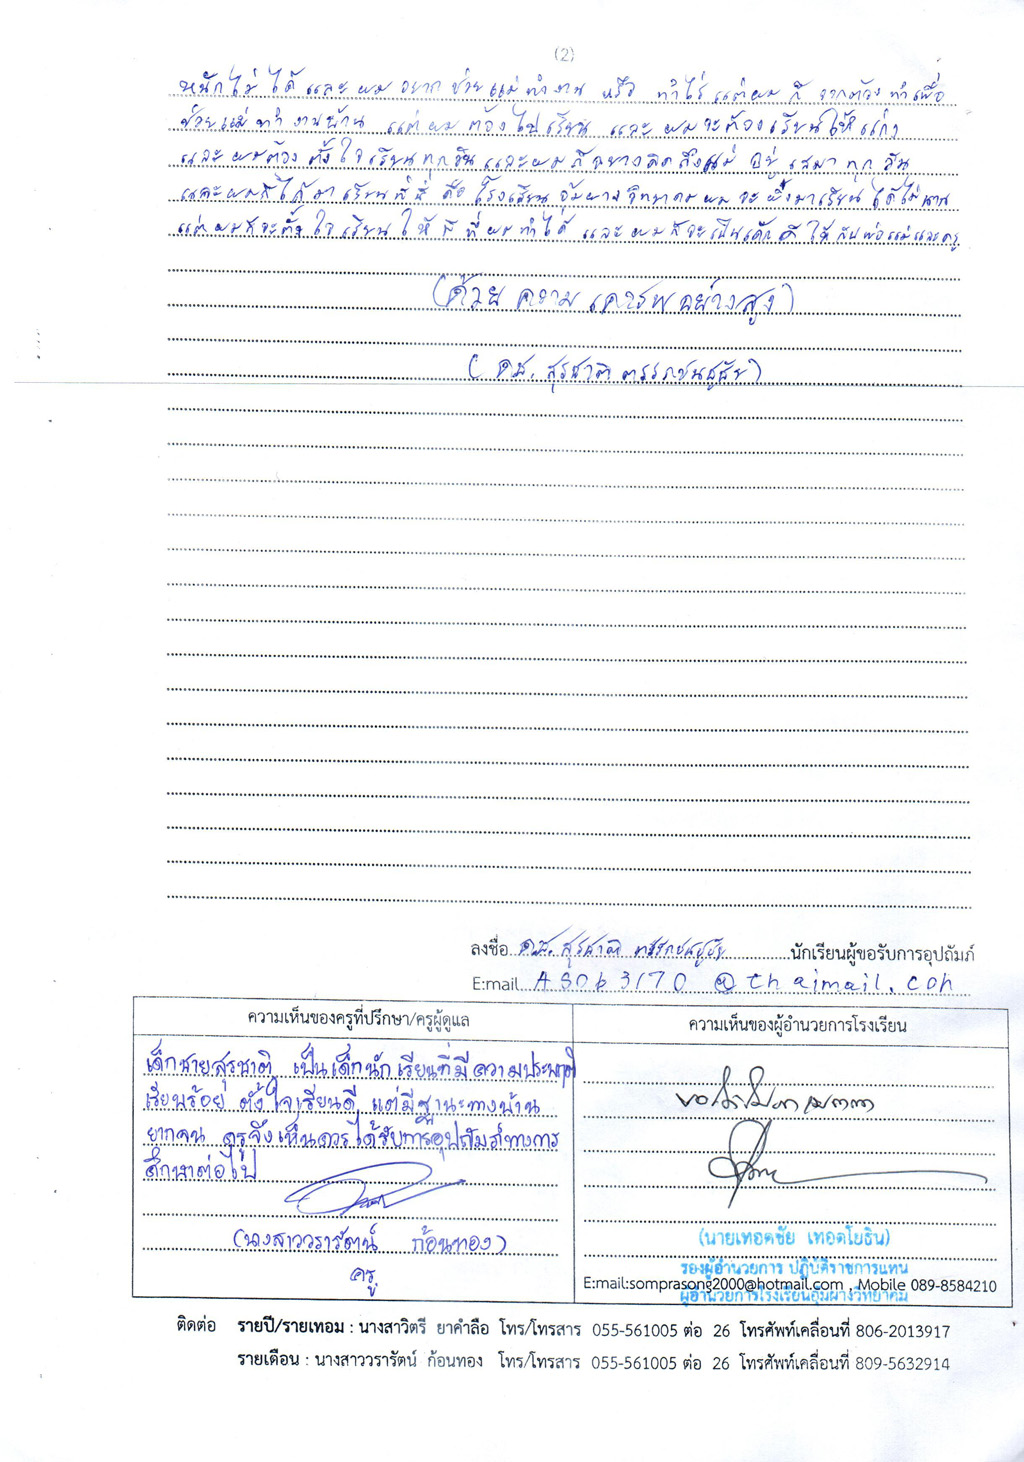 (2)
หนักไม่ได้ และ ผม อยาก ช่วยแม่ ทำงาน หรือ ทำไร่ แต่ผม ก็ ต้อง ทำเพื่อ
ช่วยแม่ ทำ งานบ้าน แต่ ผม ต้อง ไปเรียน และ ผม จะต้องเรียนให้เก่ง
และ ผมต้อง ตั้งใจเรียน ทุกวัน และผม ก็ คิดถึงแม่ อยู่ เสมอ ทุก วัน
และผมก็ได้มา เรียนที่นี่ คือ โรงเรียน อุ้มผางวิทยาคม ผม จะ พึ่งมาเรียน ได้ไม่นาน
แต่ ผมก็จะตั้งใจ เรียน ให้ ดี ที่ ผม ทำได้ และ ผม ก็จะเป็นเด็ก ดี ให้ กับพ่อแม่และครู
(ด้วย ความ เคารพ อย่างสูง)
( ดช. สุรชาติ )
ลงชื่อ ดช. สุรชาติ นักเรียนผู้ขอรับการอุปถัมภ์
E:mail A50b3170 @thaimail.coh
ความเห็นของครูที่ปรึกษา/ครูผู้ดูแล
เด็กชายสุรชาติ เป็นเด็กนักเรียนที่มีความประพฤติ
เรียบร้อย ตั้งใจเรียนดี แต่มีฐานะทางบ้าน
ยากจน ครูจึงเห็นควรได้รับการอุปถัมภ์ทางการ
ศึกษาต่อไป
(นางสาววรารัตน์ ก้อนทอง)
ครู
ความเห็นของผู้อำนวยการโรงเรียน
(นายเทอดชัย เทอดโยธิน)
รองผู้อำนวยการ ปฏิบัติราชการแทน
ผู้อำนวยการโรงเรียนอุ้มผางวิทยาคม
E:mail:somprasong2000@hotmail.com , Mobile 089-8584210
ติดต่อ รายปี/รายเทอม : นางสาวิตรี ยาคำลือ โทร/โทรสาร 055-561005 ต่อ 26 โทรศัพท์เคลื่อนที่ 806-2013917
รายเดือน : นางสาววรารัตน์ ก้อนทอง โทร/โทรสาร 055-561005 ต่อ 26 โทรศัพท์เคลื่อนที่ 809-5632914